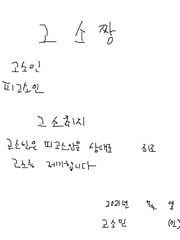 고 소 짱
고소인
피고소인
고소취지
고소인은 피고소인을 상대로
고소를 제기합니다
2021년 월 일
고소인 (인)